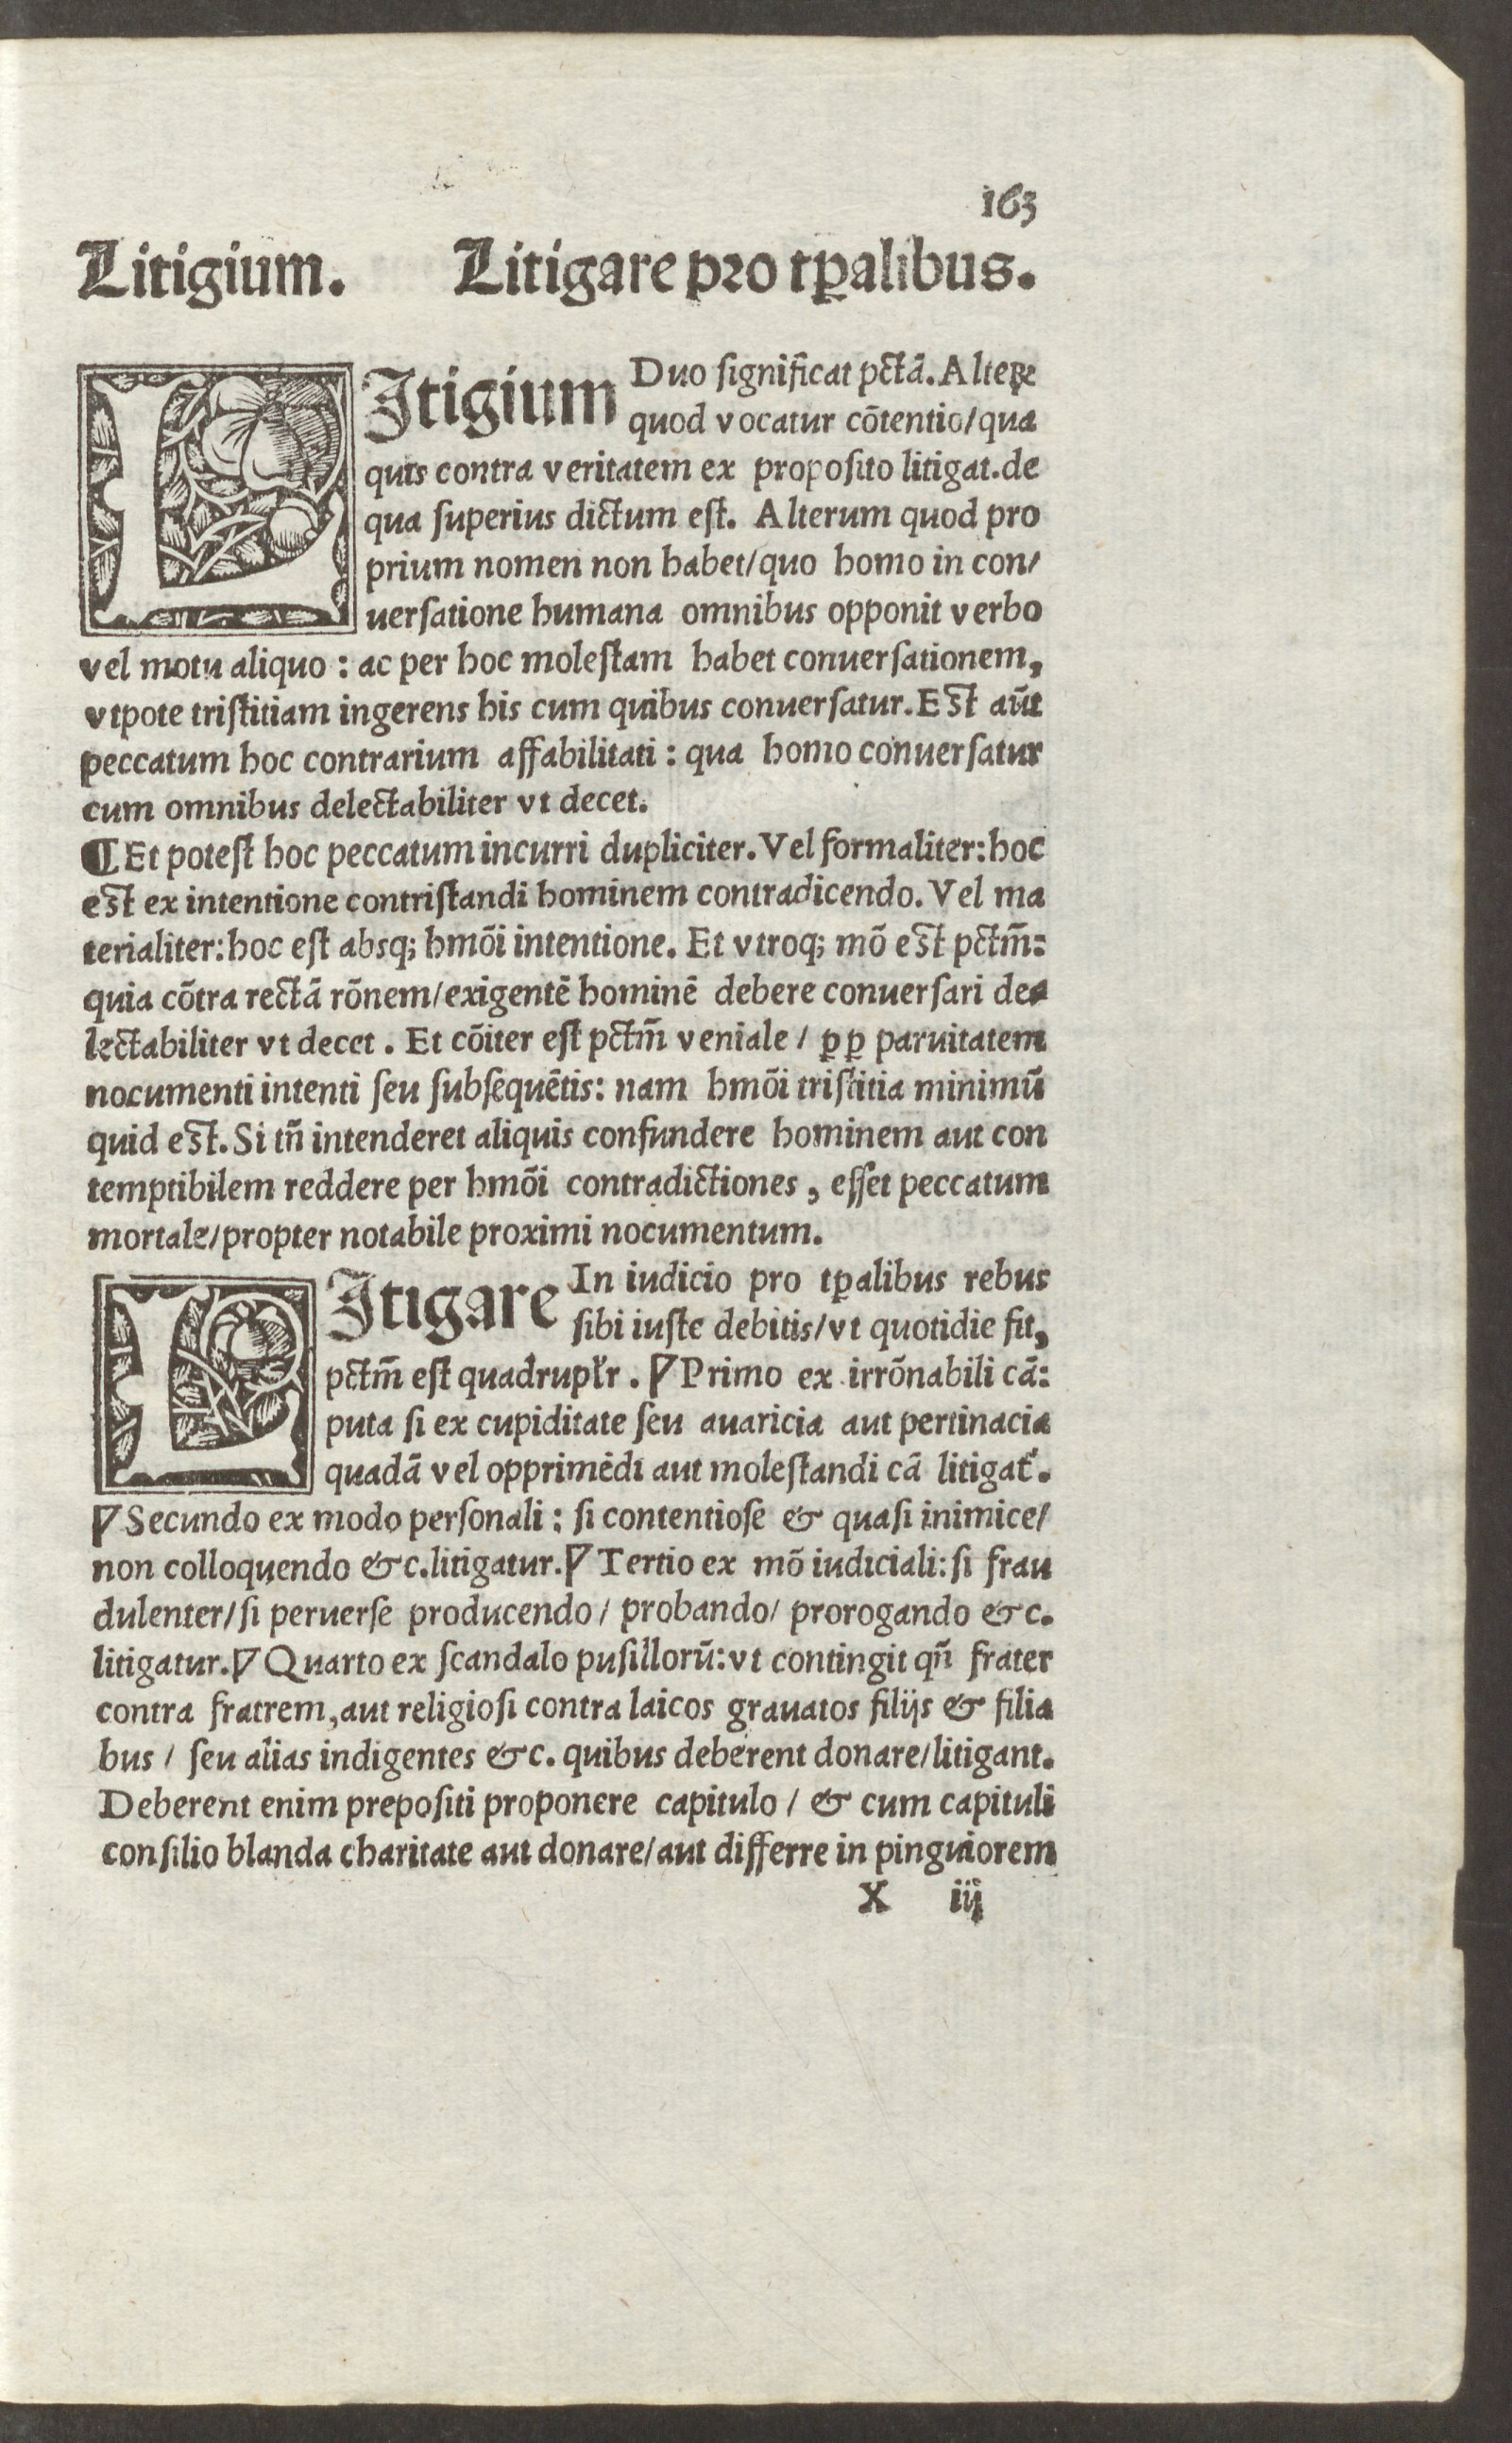 163
Litigium. Litigare pro tꝑalibus.
LItigium Duo significat pctā. Alteꝝ
quod vocatur cōtentio/qua
quis contra veritatem ex proposito litigat. de
qua superius dictum est. Alterum quod pro
prium nomen non habet/quo homo in con/
uersatione humana omnibus opponit verbo
vel motu aliquo : ac per hoc molestam habet conuersationem,
vtpote tristitiam ingerens his cum quibus conuersatur. Est aūt
peccatum hoc contrarium affabilitati : qua homo conuersatur
cum omnibus delectabiliter vt decet.
¶ Et potest hoc peccatum incurri dupliciter. Vel formaliter: hoc
est ex intentione contristandi hominem contradicendo. Vel ma
terialiter: hoc est absq; hmōi intentione. Et vtroq; mō est pctm̄:
quia cōtra rectā rōnem/exigentē hominē debere conuersari de
lectabiliter vt decet . Et cōiter est pctm̄ veniale / ꝓꝑ paruitatem
nocumenti intenti seu subsequētis: nam hmōi tristitia minimū
quid est. Si tn̄ intenderet aliquis confundere hominem aut con
temptibilem reddere per hmōi contradictiones , esset peccatum
mortale/propter notabile proximi nocumentum.
LItigare In iudicio pro tꝑalibus rebus
sibi iuste debitis/vt quotidie fit,
pctm̄ est quadruplr̄ . Primo ex irrōnabili cā:
puta si ex cupiditate seu auaricia aut pertinacia
quadā vel opprimēdi aut molestandi cā litigat᷑.
Secundo ex modo personali : si contentiose & quasi inimice/
non colloquendo &c. litigatur. Tertio ex mō iudiciali: si frau
dulenter/si peruerse producendo/ probando/ prorogando &c.
litigatur. Quarto ex scandalo pusillorū: vt contingit qn̄ frater
contra fratrem, aut religiosi contra laicos grauatos filijs & filia
bus / seu alias indigentes &c. quibus deberent donare/litigant.
Deberent enim prepositi proponere capitulo / & cum capituli
consilio blanda charitate aut donare/aut differre in pinguiorem
X iij